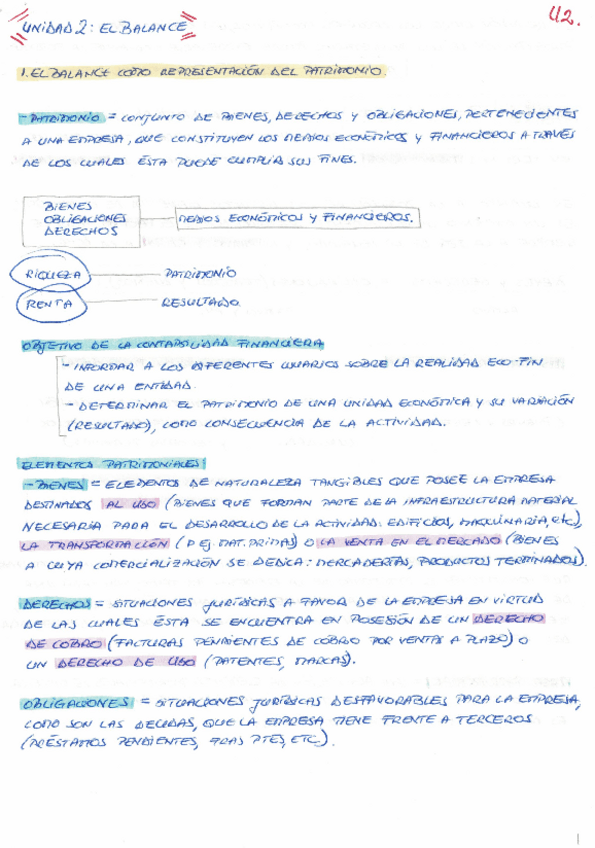 UNIDAD 2: EL BALANCE
U2.
1. EL BALANCE COMO REPRESENTACIÓN DEL PATRIMONIO.
- PATRIMONIO = CONJUNTO DE BIENES, DERECHOS Y OBLIGACIONES, PERTENECIENTES
A UNA EMPRESA, QUE CONSTITUYEN LOS MEDIOS ECONÓMICOS Y FINANCIEROS A TRAVÉS
DE LOS CUALES ÉSTA PUEDE CUMPLIR SUS FINES.
BIENES
OBLIGACIONES
DERECHOS
MEDIOS ECONÓMICOS Y FINANCIEROS.
RIQUEZA PATRIMONIO
RENTA RESULTADO.
OBJETIVO DE LA CONTABILIDAD FINANCIERA
- INFORMAR A LOS DIFERENTES USUARIOS SOBRE LA REALIDAD ECO-FIN
DE UNA ENTIDAD.
- DETERMINAR EL PATRIMONIO DE UNA UNIDAD ECONÓMICA Y SU VARIACIÓN
(RESULTADO), COMO CONSECUENCIA DE LA ACTIVIDAD.
ELEMENTOS PATRIMONIALES
- BIENES = ELEMENTOS DE NATURALEZA TANGIBLES QUE POSEE LA EMPRESA
DESTINADOS AL USO (BIENES QUE FORMAN PARTE DE LA INFRAESTRUCTURA MATERIAL
NECESARIA PARA EL DESARROLLO DE LA ACTIVIDAD: EDIFICIOS, MAQUINARIA, etc),
LA TRANSFORMACIÓN (P EJ. MAT. PRIMAS) O LA VENTA EN EL MERCADO (BIENES
A CUYA COMERCIALIZACIÓN SE DEDICA: MERCADERÍAS, PRODUCTOS TERMINADOS).
DERECHOS = SITUACIONES JURÍDICAS A FAVOR DE LA EMPRESA EN VIRTUD
DE LAS CUALES ÉSTA SE ENCUENTRA EN POSESIÓN DE UN DERECHO
DE COBRO (FACTURAS PENDIENTES DE COBRO POR VENTAS A PLAZO) O
UN DERECHO DE USO (PATENTES, MARCAS).
OBLIGACIONES = SITUACIONES JURÍDICAS DESFAVORABLES PARA LA EMPRESA,
COMO SON LAS DEUDAS, QUE LA EMPRESA TIENE FRENTE A TERCEROS
(PRÉSTAMOS PENDIENTES, FRAS PTES, ETC.).
1